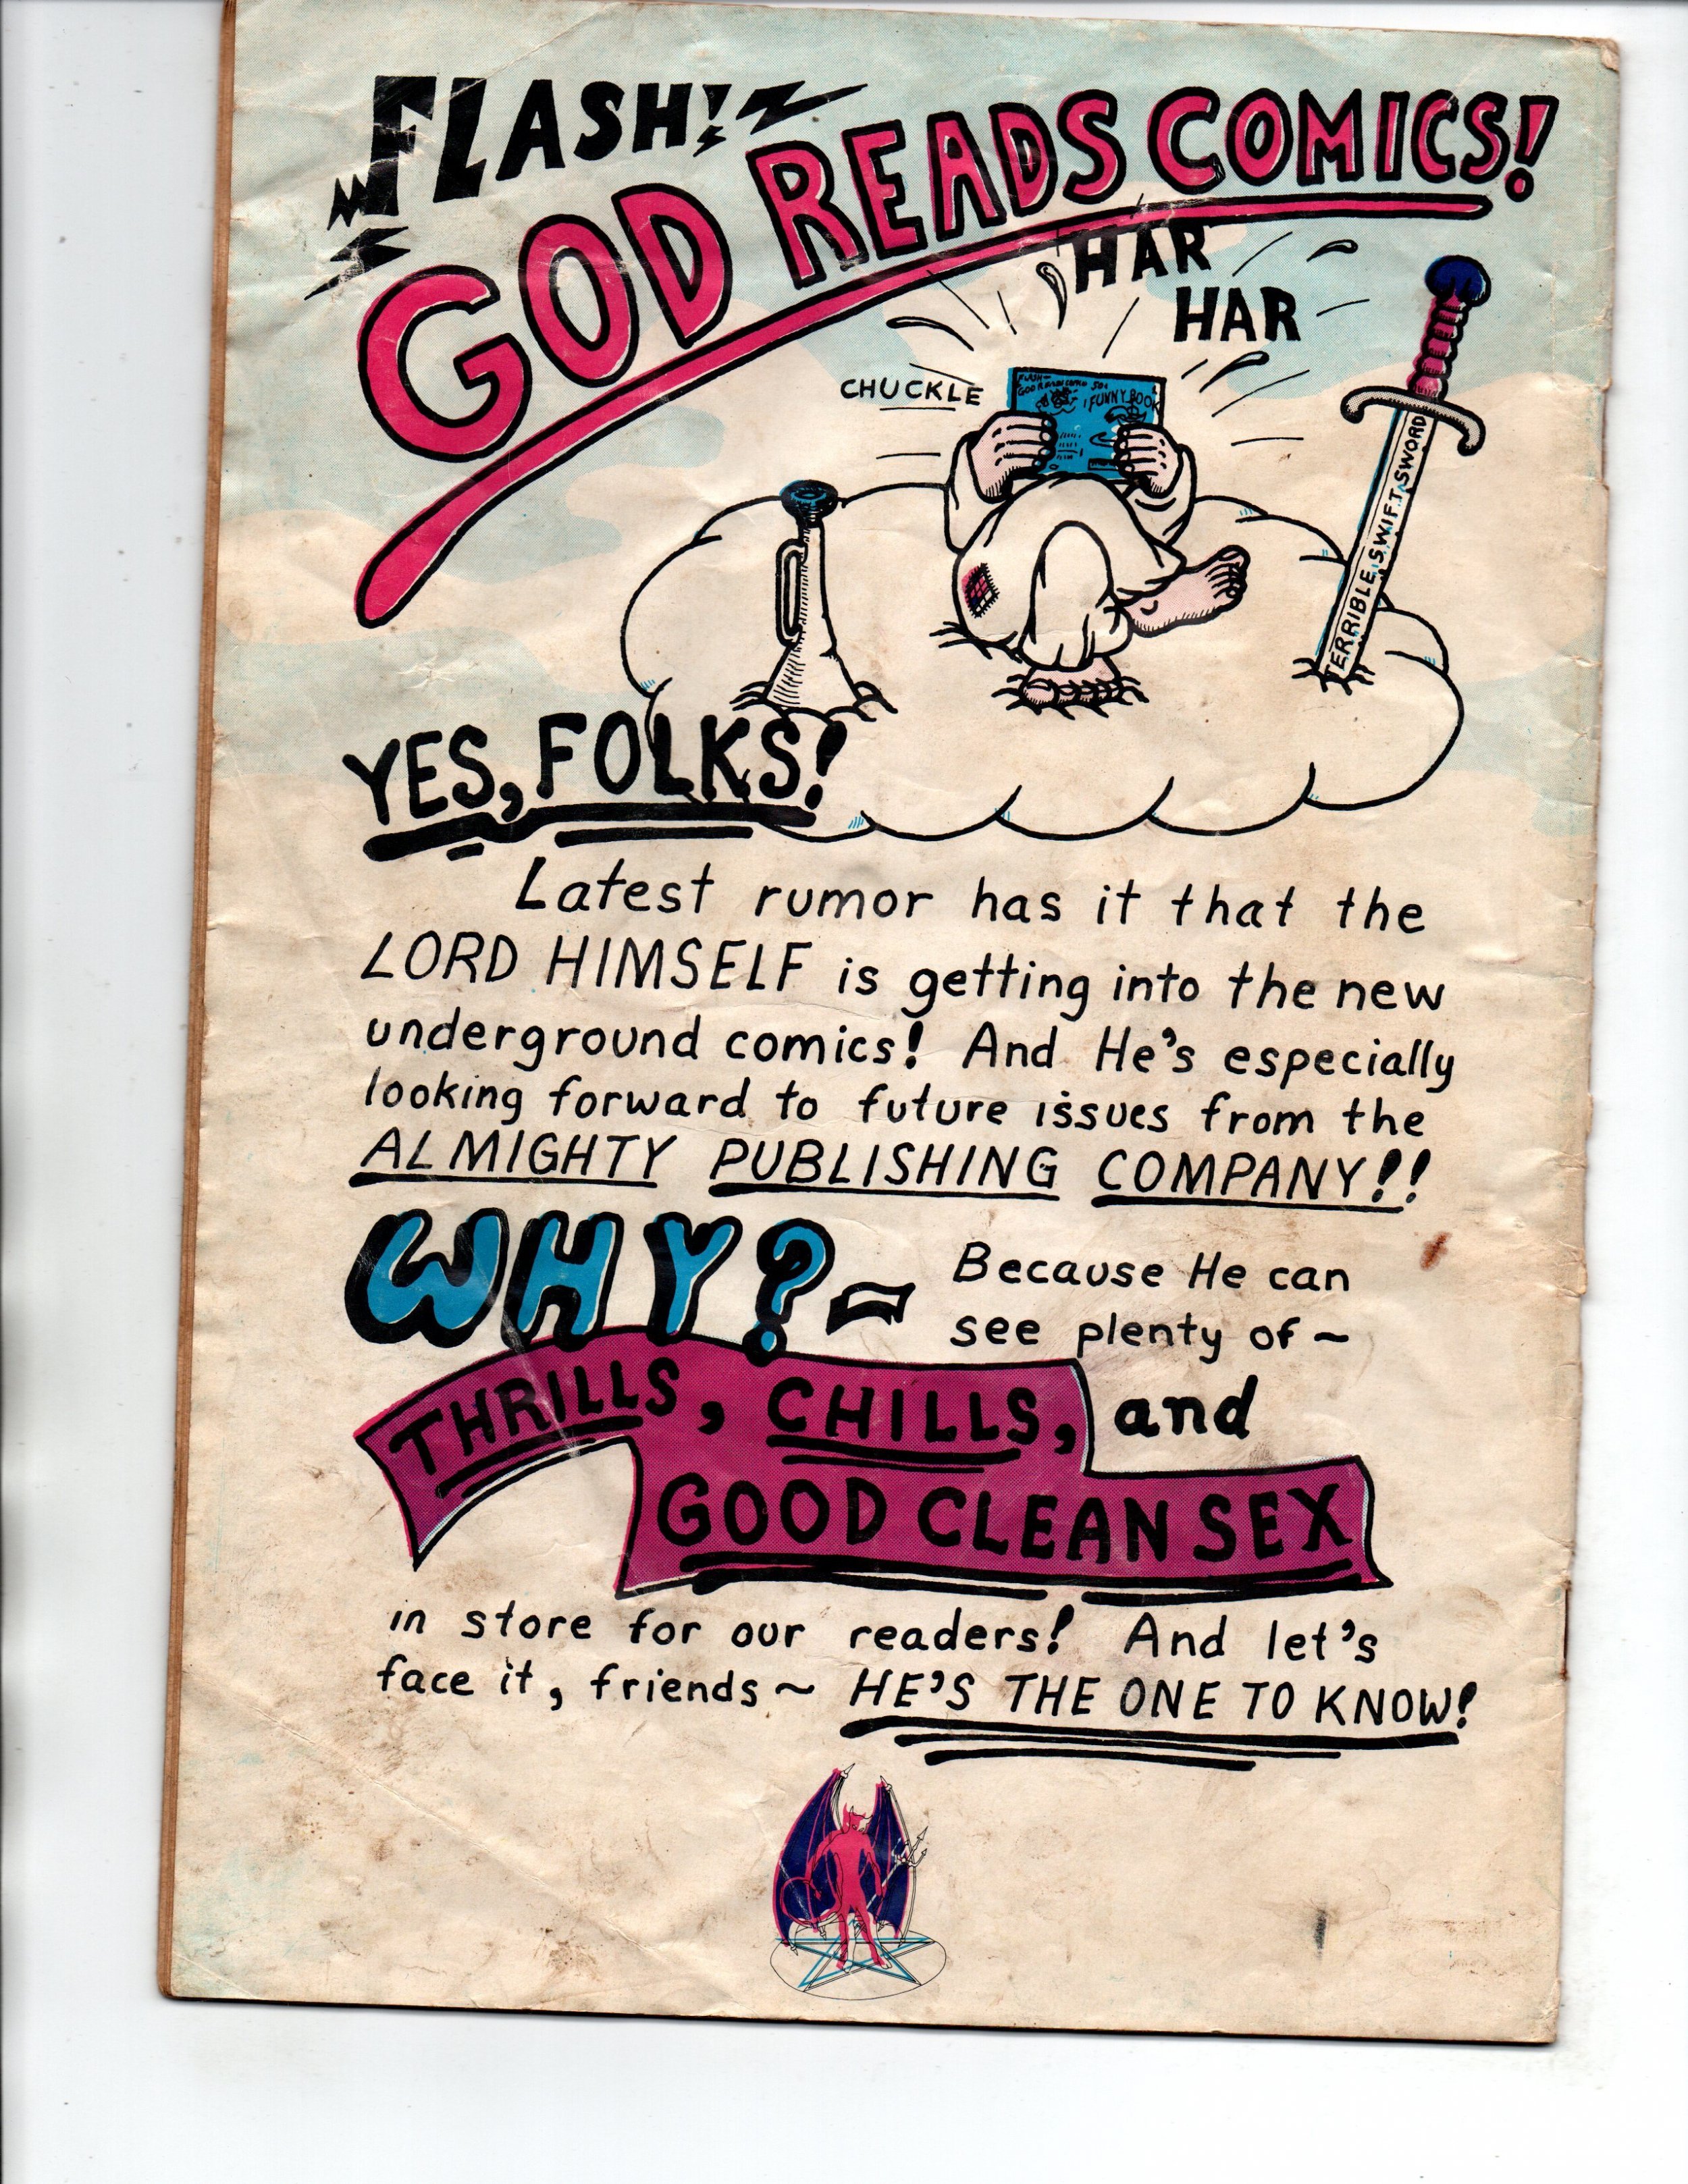 FLASH!
GOD READS COMICS!
HAR
HAR
CHUCKLE
FUNNY BOOK
TERRIBLE SWIFT SWORD
YES, FOLKS!
Latest rumor has it that the
LORD HIMSELF is getting into the new
underground comics! And He's especially
looking forward to future issues from the
ALMIGHTY PUBLISHING COMPANY!!
WHY?~ Because He can
see plenty of~
THRILLS, CHILLS, and
GOOD CLEAN SEX
in store for our readers! And let's
face it, friends~ HE'S THE ONE TO KNOW!